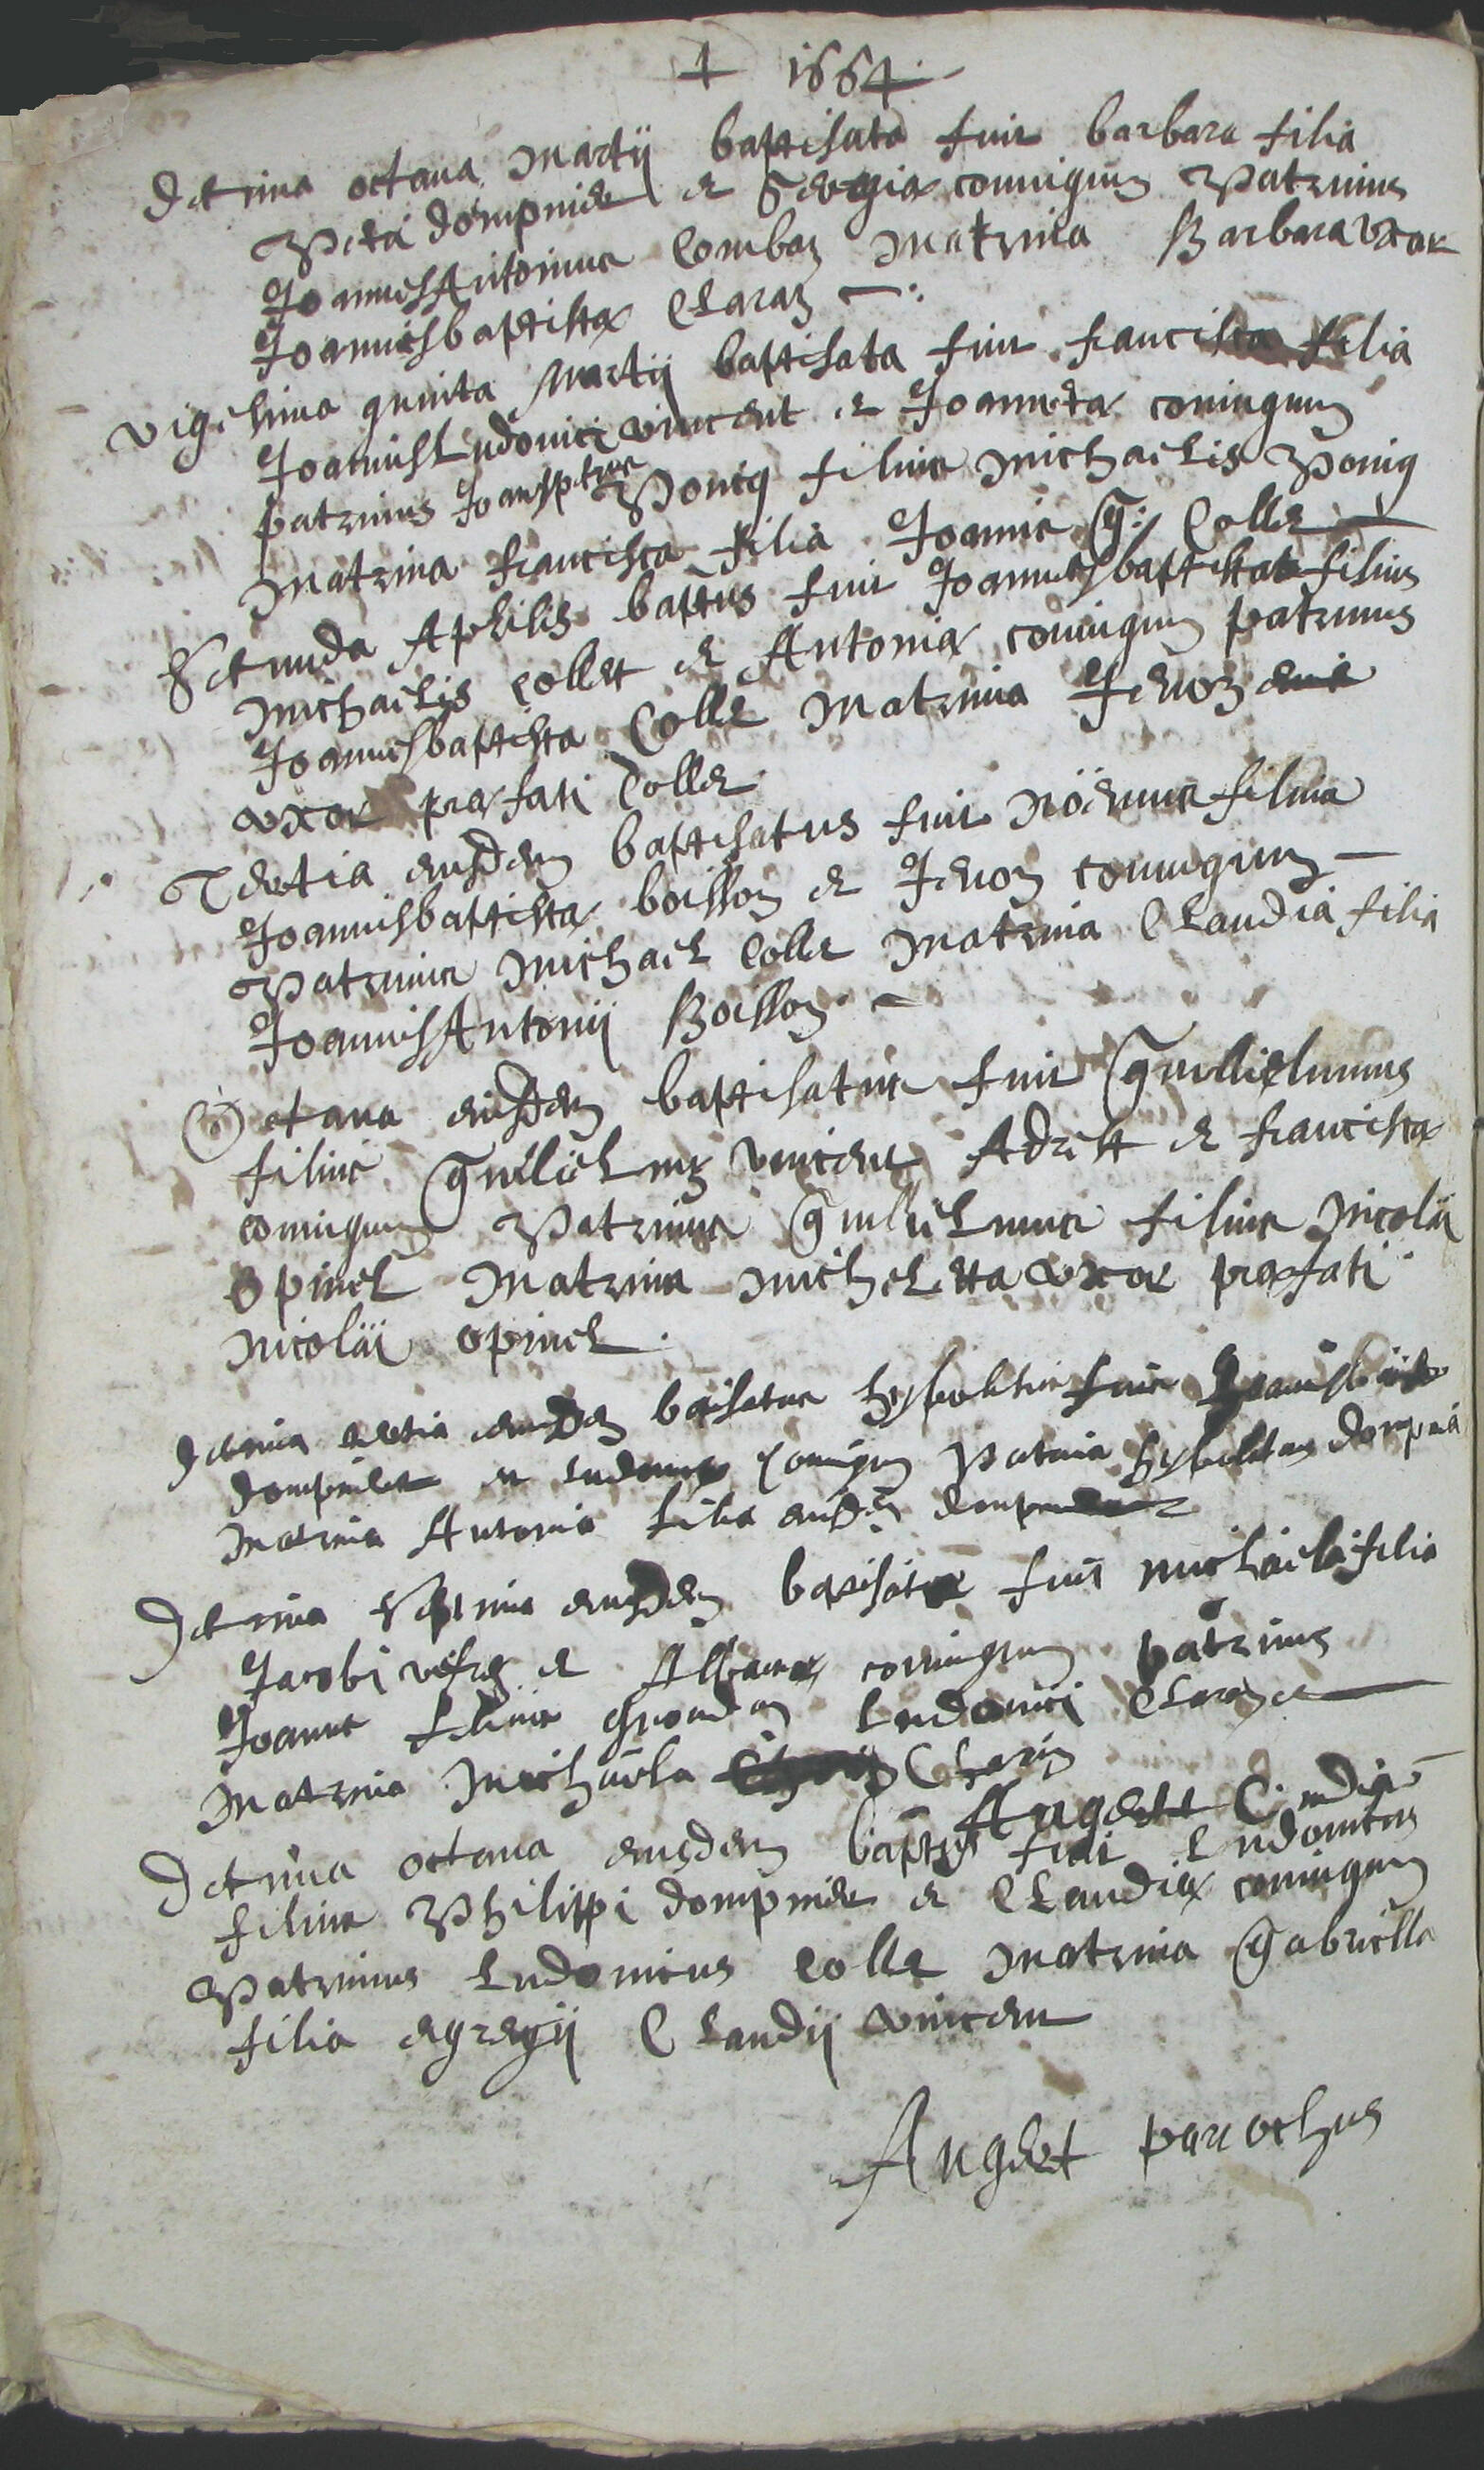 + 1664.
Decima octava Martij baptisata fuit barbara filia
Petri dompnier et Sergiæ coniugum Patrinus
JoannesAntonius Combaz Matrina Barbara Uxor
Joannisbaptistæ Claraz
vigesima quinta Martij baptisata fuit francisca filia
JoannisLudovici vincent et Joannetæ coniugum
patrinus Joanspetrus Poncy filius Michaelis Poncy
Matrina francisca filia Joannis G: Collet
Secunda Aprilis baptus fuit Joannesbaptista filius
Michaelis Collet et Antoniæ coniugum patrinus
Joannesbaptista Collet Matrina Jenon
uxor præfati Collet
Tertia eiusdem baptisatus fuit Noënus filius
Joannisbaptistæ boisson et Jenon coniugum
Patrinus Michael Collet Matrina Claudia filia
JoannisAntonij Boisson
Octava eiusdem baptisatus fuit Gullielmus
filius Gullielmi vincent Adrest et franciscæ
coniugum Patrinus Gullielmus filius Nicolai
Opinel Matrina Micheletta uxor præfati
Nicolai opinel.
Decima tertia eiusdem baisatus hypolitus fuit
dompnier et ludovicæ Coniugum Patrinus hypolitus dompni
Matrina Antonia filia eiusdem
Decima septima eiusdem baptisata fuit Michaela filia
Jacobi et coniugum patrinus
Joannes filius quondam Ludovici Claraz et
Matrina Michaela Claraz
Angelet C
Decima octava eiusdem baptus fuit Ludovicus
filius Philippi dompnier et Claudiæ coniugum
Patrinus Ludovicus Collet Matrina Gabriella
filia egregij Claudij vincent
Angelet parochus